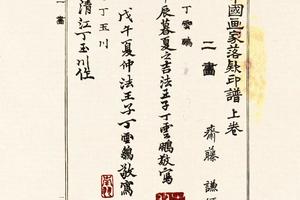 國画家落款印譜 上卷
齋藤 謙
二畫
丁雲鵬
辰暮夏之吉法王子丁雲鵬敬寫
戊午夏仲法王子丁雲鵬敬寫
丁玉川
清江丁玉川作
二畫